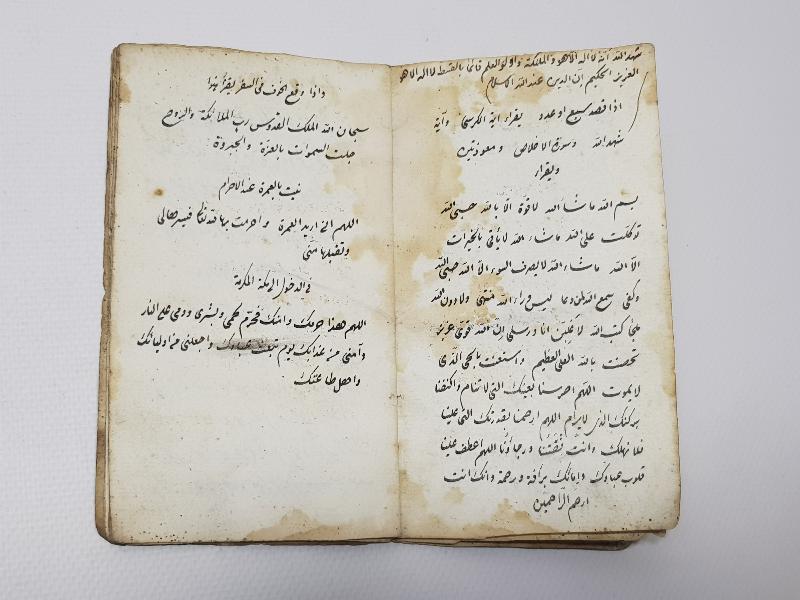 شهد الله أنه لا اله الا هو والملئكة واولوا العلم قائما بالقسط لا اله الا هو
العزيز الحكيم ان الدين عند الله الاسلام
اذا قصد سبع او عدو يقراء اية الكرسى وآية
شهد الله وسورة الاخلاص ومعوذتين
ويقراء
بسم الله ما شاء الله لا قوة الا بالله حسبى الله
توكلت على الله ما شاء الله لا يأتى بالخيرات
الا الله ما شاء الله لا يصرف السوء الا الله حسبى الله
وكفى سمع الله لمن دعا ليس وراء الله منتهى ولا دون الله
ملجأ كتب الله لاغلبن انا ورسلى ان الله قوى عزيز
تحصنت بالله العلى العظيم واستعنت بالحى الذى
لا يموت اللهم احرسنا بعينك التى لا تنام واكنفنا
بركنك الذى لا يرام اللهم ارحمنا بقدرتك التى علينا
فلا نهلك وانت ثقتنا ورجاؤنا اللهم اعطف علينا
قلوب عبادك وامائك برأفة ورحمة وانك انت
ارحم الراحمين
واذا وقع الخوف فى السفر يقرأ هذا
سبحان الله الملك القدوس رب الملائكة والروح
جلت السموات بالعزة والجبروة
نيت بالعمرة عند الاحرام
اللهم انى اريد العمرة واحرمت بها لله تعالى فيسرها لى
وتقبلها منى
فى الدخول الى مكة المكرمة
اللهم هذا حرمك وامنك فحرم لحمى وبشرى ودمى على النار
وآمنى من عذابك يوم تبعث عبادك واجعلنى من اوليائك
واهل طاعتك